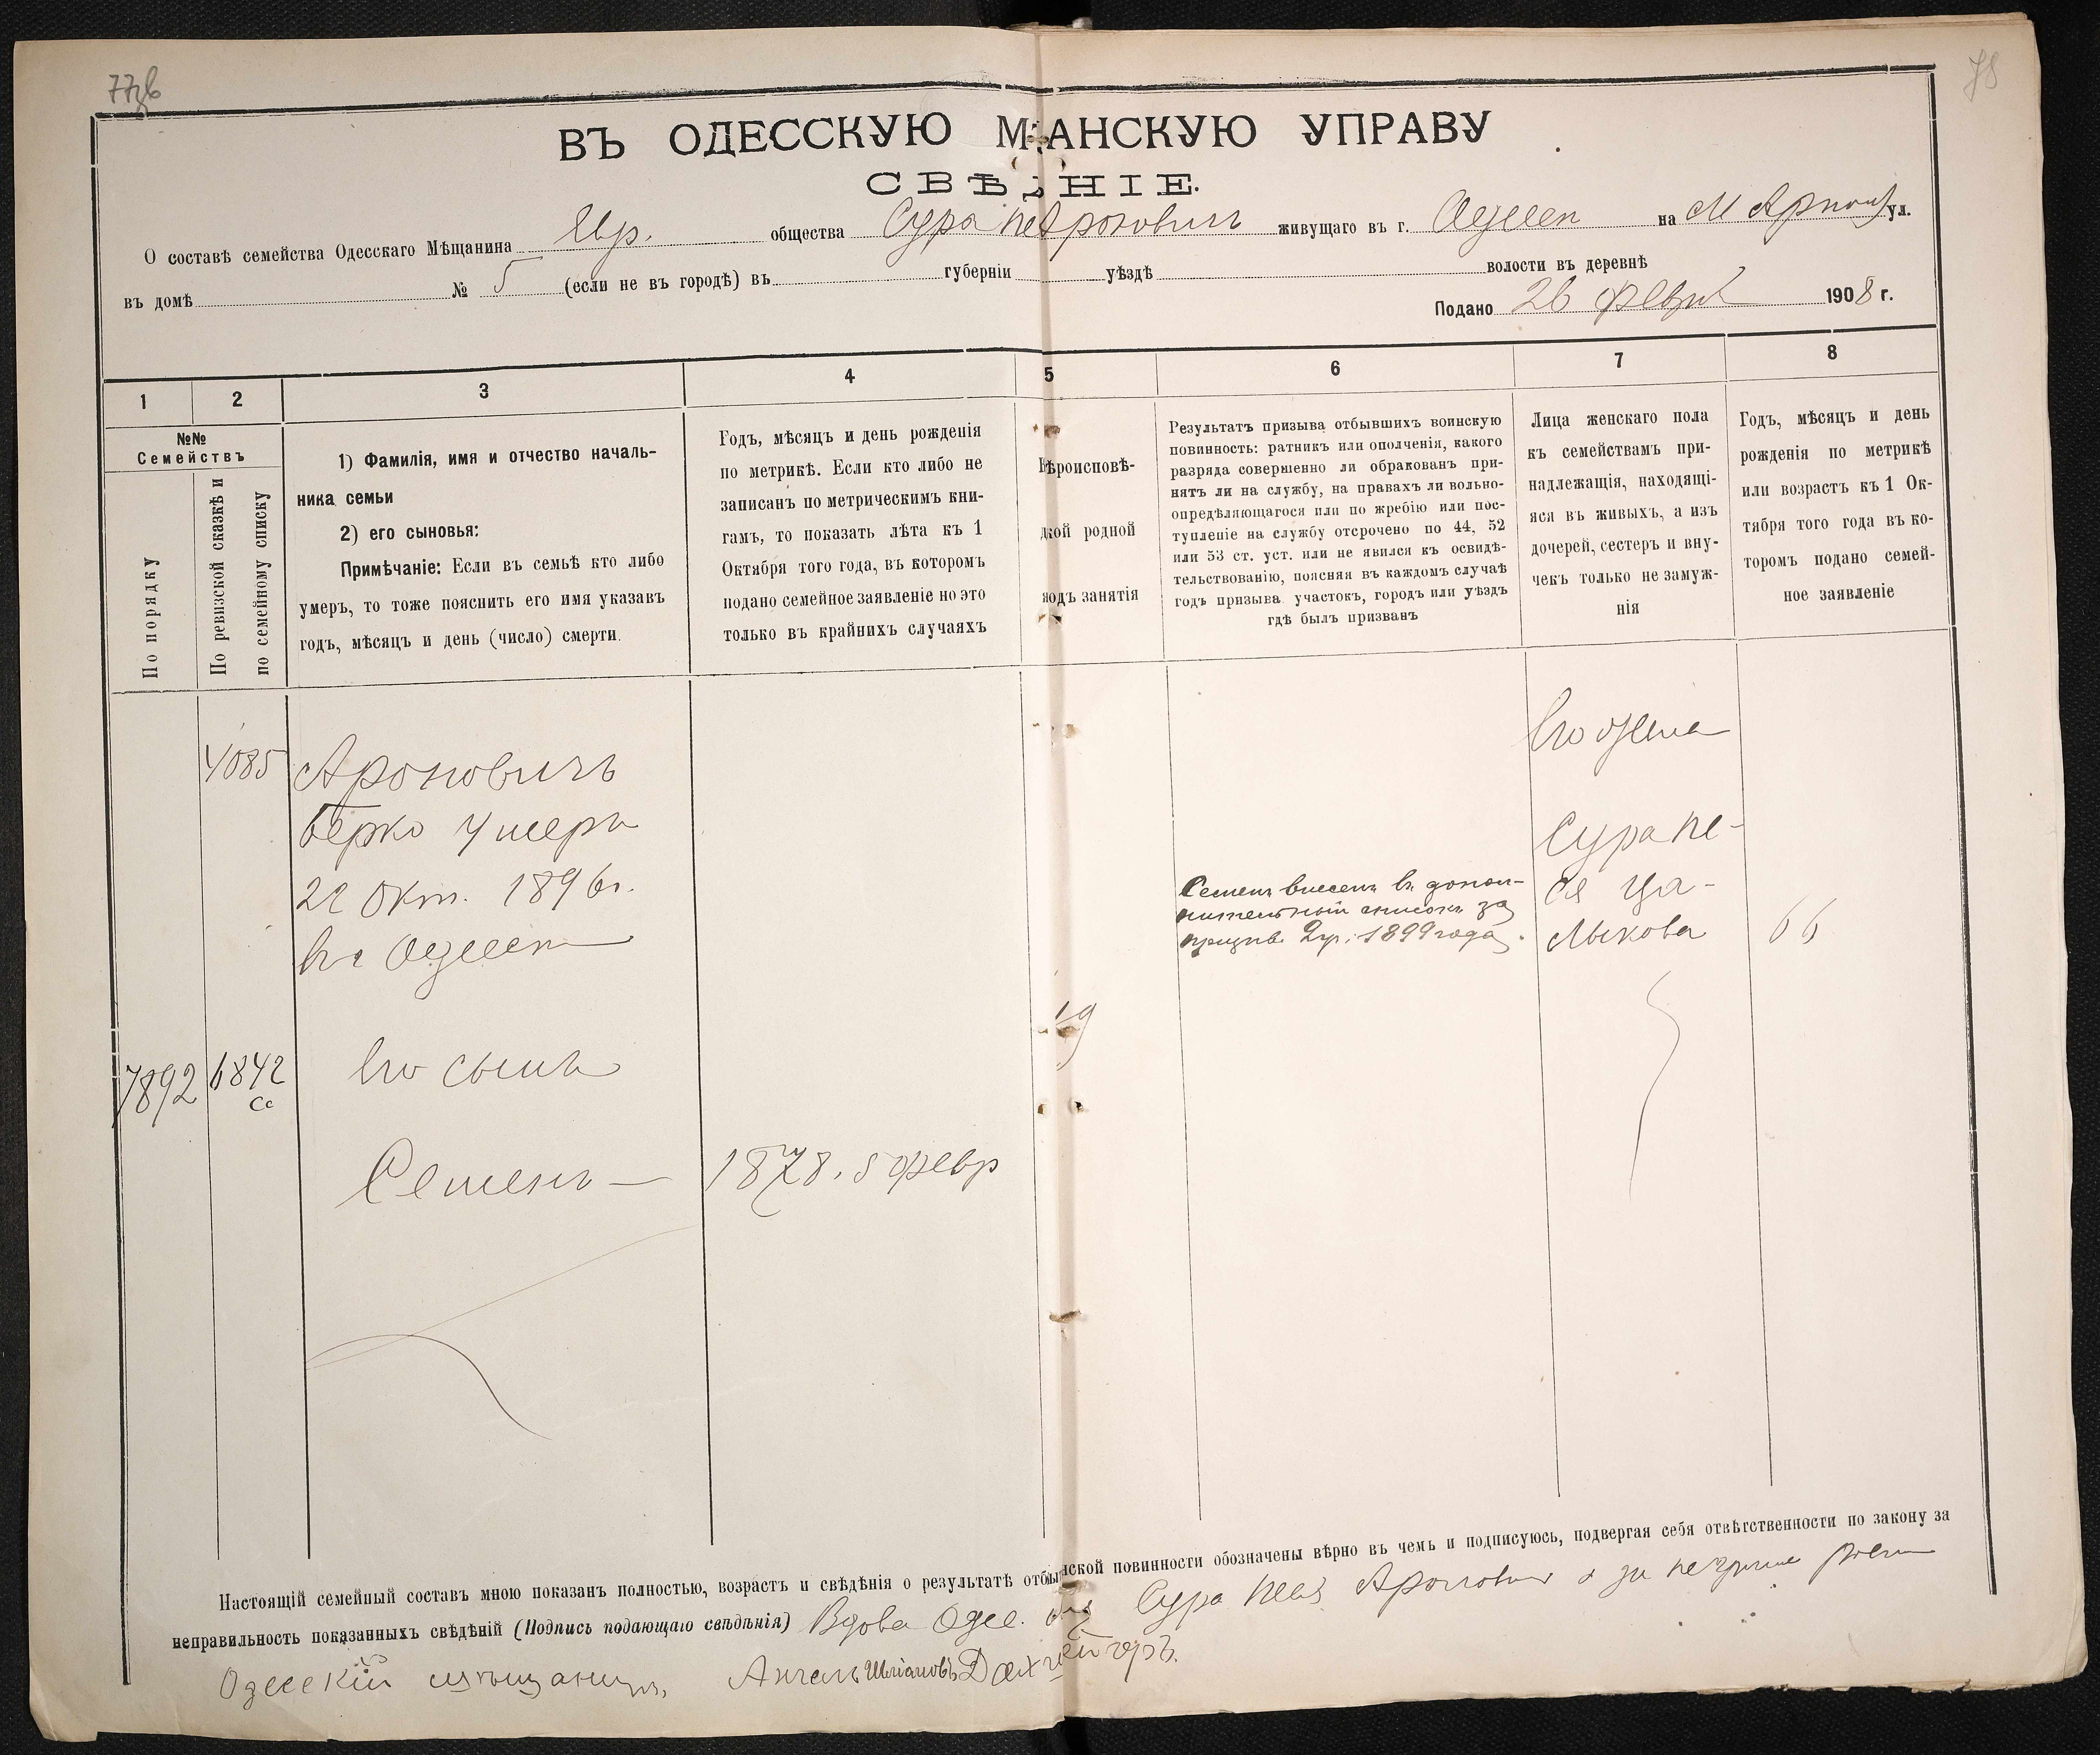 78
ВЪ ОДЕССКУЮ М АНСКУЮ УПРАВУ
СВѢ НІЕ.
О составѣ семейства Одесскаго Мѣщанина Евр. общества Сура Пе Ароновичъ живущаго въ г. Одессѣ на М Арнаут ул.
въ домѣ № 5 (если не въ городѣ) въ губерніи уѣздѣ волости въ деревнѣ
Подано 26 февр 1908 г.
1 2 3 4 5 6 7 8
№№
Семействъ
По порядку
По ревизской сказкѣ и
по семейному списку
1) Фамилія, имя и отчество началь-
ника семьи
2) его сыновья:
Примѣчаніе: Если въ семьѣ кто либо
умеръ, то тоже пояснить его имя указавъ
годъ, мѣсяцъ и день (число) смерти.
Годъ, мѣсяцъ и день рожденія
по метрикѣ. Если кто либо не
записанъ по метрическимъ кни-
гамъ, то показать лѣта къ 1
Октября того года, въ которомъ
подано семейное заявленіе но это
только въ крайнихъ случаяхъ
Вѣроисповѣ-
родной
занятія
Результатъ призыва отбывшихъ воинскую
повинность: ратникъ или ополченія, какого
разряда совершенно ли обракованъ при-
нятъ ли на службу, на правахъ ли вольно-
опредѣляющагося или по жребію или пос-
тупленіе на службу отсрочено по 44, 52
или 53 ст. уст. или не явился къ освидѣ-
тельствованію, поясняя въ каждомъ случаѣ
годъ призыва участокъ, городъ или уѣздъ
гдѣ былъ призванъ
Лица женскаго пола
къ семействамъ при-
надлежащія, находящі-
яся въ живыхъ, а изъ
дочерей, сестеръ и вну-
чекъ только не замуж-
нія
Годъ, мѣсяцъ и день
рожденія по метрикѣ
или возрастъ къ 1 Ок-
тября того года въ ко-
торомъ подано семей-
ное заявленіе
4085 Ароновичъ
Берко умеръ
22 Окт. 1896 г.
въ Одессѣ
7892 6842 Его сынъ
Сс
Семенъ — 1878. 5 февр
Семенъ внесенъ въ допол-
нительный списокъ за
призыв. 2 уч. 1899 года.
Его жена
Сура Пе-
ся Ца-
лыкова 66
Настоящій семейный составъ мною показанъ полностью, возрастъ и свѣдѣнія о результатѣ отбы нской повинности обозначены вѣрно въ чемъ и подписуюсь, подвергая себя отвѣтственности по закону за
неправильность показанныхъ свѣдѣній (Подпись подающаго свѣдѣнія) Вдова Одес. Сура Ароновичъ а за неграм
Одесскій мѣщанинъ